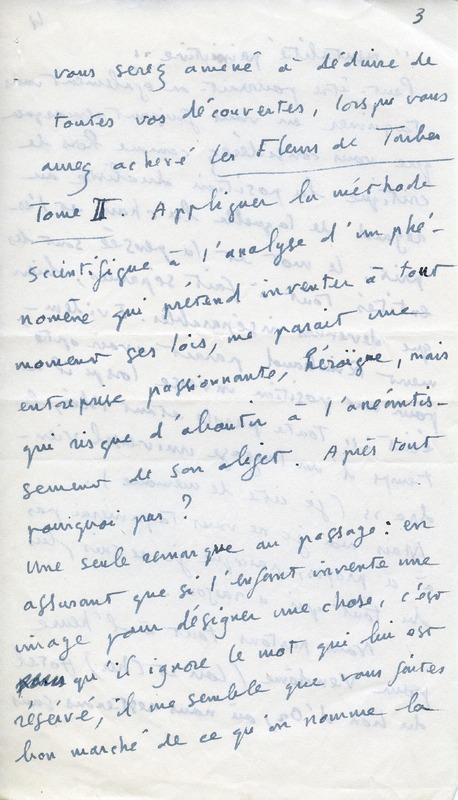 3
vous serez amené à déduire de
toutes vos découvertes, lorsque vous
aurez achevé les Fleurs de Tarbes
Tome II. Appliquer la méthode
scientifique à l'analyse d'un phé-
nomène qui prétend inventer à tout
moment ses lois, me parait une
entreprise passionnante, héroïque, mais
qui risque d'aboutir à l'anéantis-
sement de son objet. Après tout
pourquoi pas ?
Une seule remarque au passage : en
assurant que si l'enfant invente une
image pour désigner une chose, c'est
qu'il ignore le mot qui lui est
réservé, il me semble que vous faites
bon marché de ce qu'on nomme la